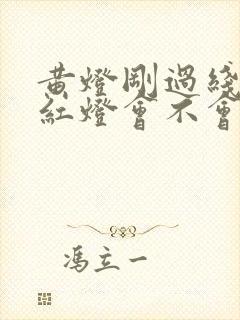 黄燈剛過綫
紅燈會不會
馮立一